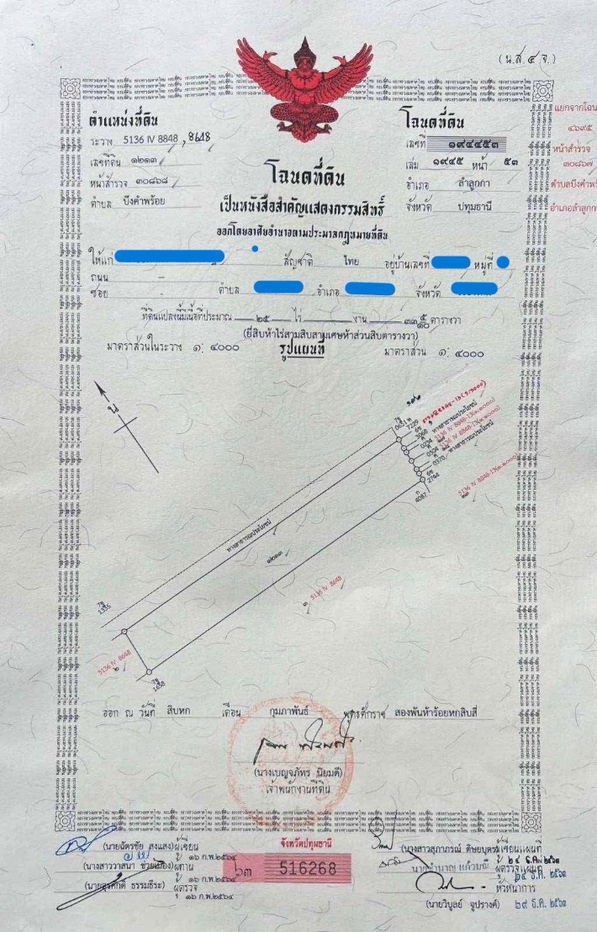 (น.ส.๔ จ.)
ตำแหน่งที่ดิน
ระวาง 5136 IV 8848, 8648
เลขที่ดิน ๑๒๑๓
หน้าสำรวจ ๓๐๘๖๘
ตำบล บึงคำพร้อย
โฉนดที่ดิน
เลขที่ ๑๙๔๔๕๓
เล่ม ๑๙๔๕ หน้า ๕๓
อำเภอ ลำลูกกา
จังหวัด ปทุมธานี
แยกจากโฉน
๔๖๙๕
หน้าสำรวจ
๓๐๘๖๗
ตำบลบึงคำพร้
อำเภอลำลูกกา
โฉนดที่ดิน
เป็นหนังสือสำคัญแสดงกรรมสิทธิ์
ออกโดยอาศัยอำนาจตามประมวลกฎหมายที่ดิน
ให้แก่ สัญชาติ ไทย อยู่บ้านเลขที่ หมู่ที่
ถนน –
ซอย ตำบล อำเภอ จังหวัด
ที่ดินแปลงนี้มีเนื้อที่ประมาณ ๒๕ ไร่ – งาน ๓๓ ๕/๑๐ ตารางวา
(ยี่สิบห้าไร่สามสิบสามเศษห้าส่วนสิบตารางวา)
มาตราส่วนในระวาง ๑:๔๐๐๐ รูปแผนที่ มาตราส่วน ๑:๔๐๐๐
น
ทางสาธารณประโยชน์
๑๒๑๓
5136 IV 8648
5136 IV 8648
ออก ณ วันที่ สิบหก เดือน กุมภาพันธ์ พุทธศักราช สองพันห้าร้อยหกสิบสี่
(นางเบญจภัทร นิยมดี)
เจ้าพนักงานที่ดิน
จังหวัดปทุมธานี
๖๓ 516268
(นายฉัตรชัย สูงแสง) ผู้เขียน
๑๖ ก.พ.๒๕๖๔
ผู้ทาน
๑๖ ก.พ.๒๕๖๔
(นายสุรศักดิ์ ธรรมธีระ) ผู้ตรวจ
๑๖ ก.พ.๒๕๖๔
ผู้เขียนแผนที่
ผู้ตรวจแผนที่
หัวหน้าการ
(นายวิบูลย์ จูปรางค์) ๒๙ ธ.ค. ๒๕๖๓